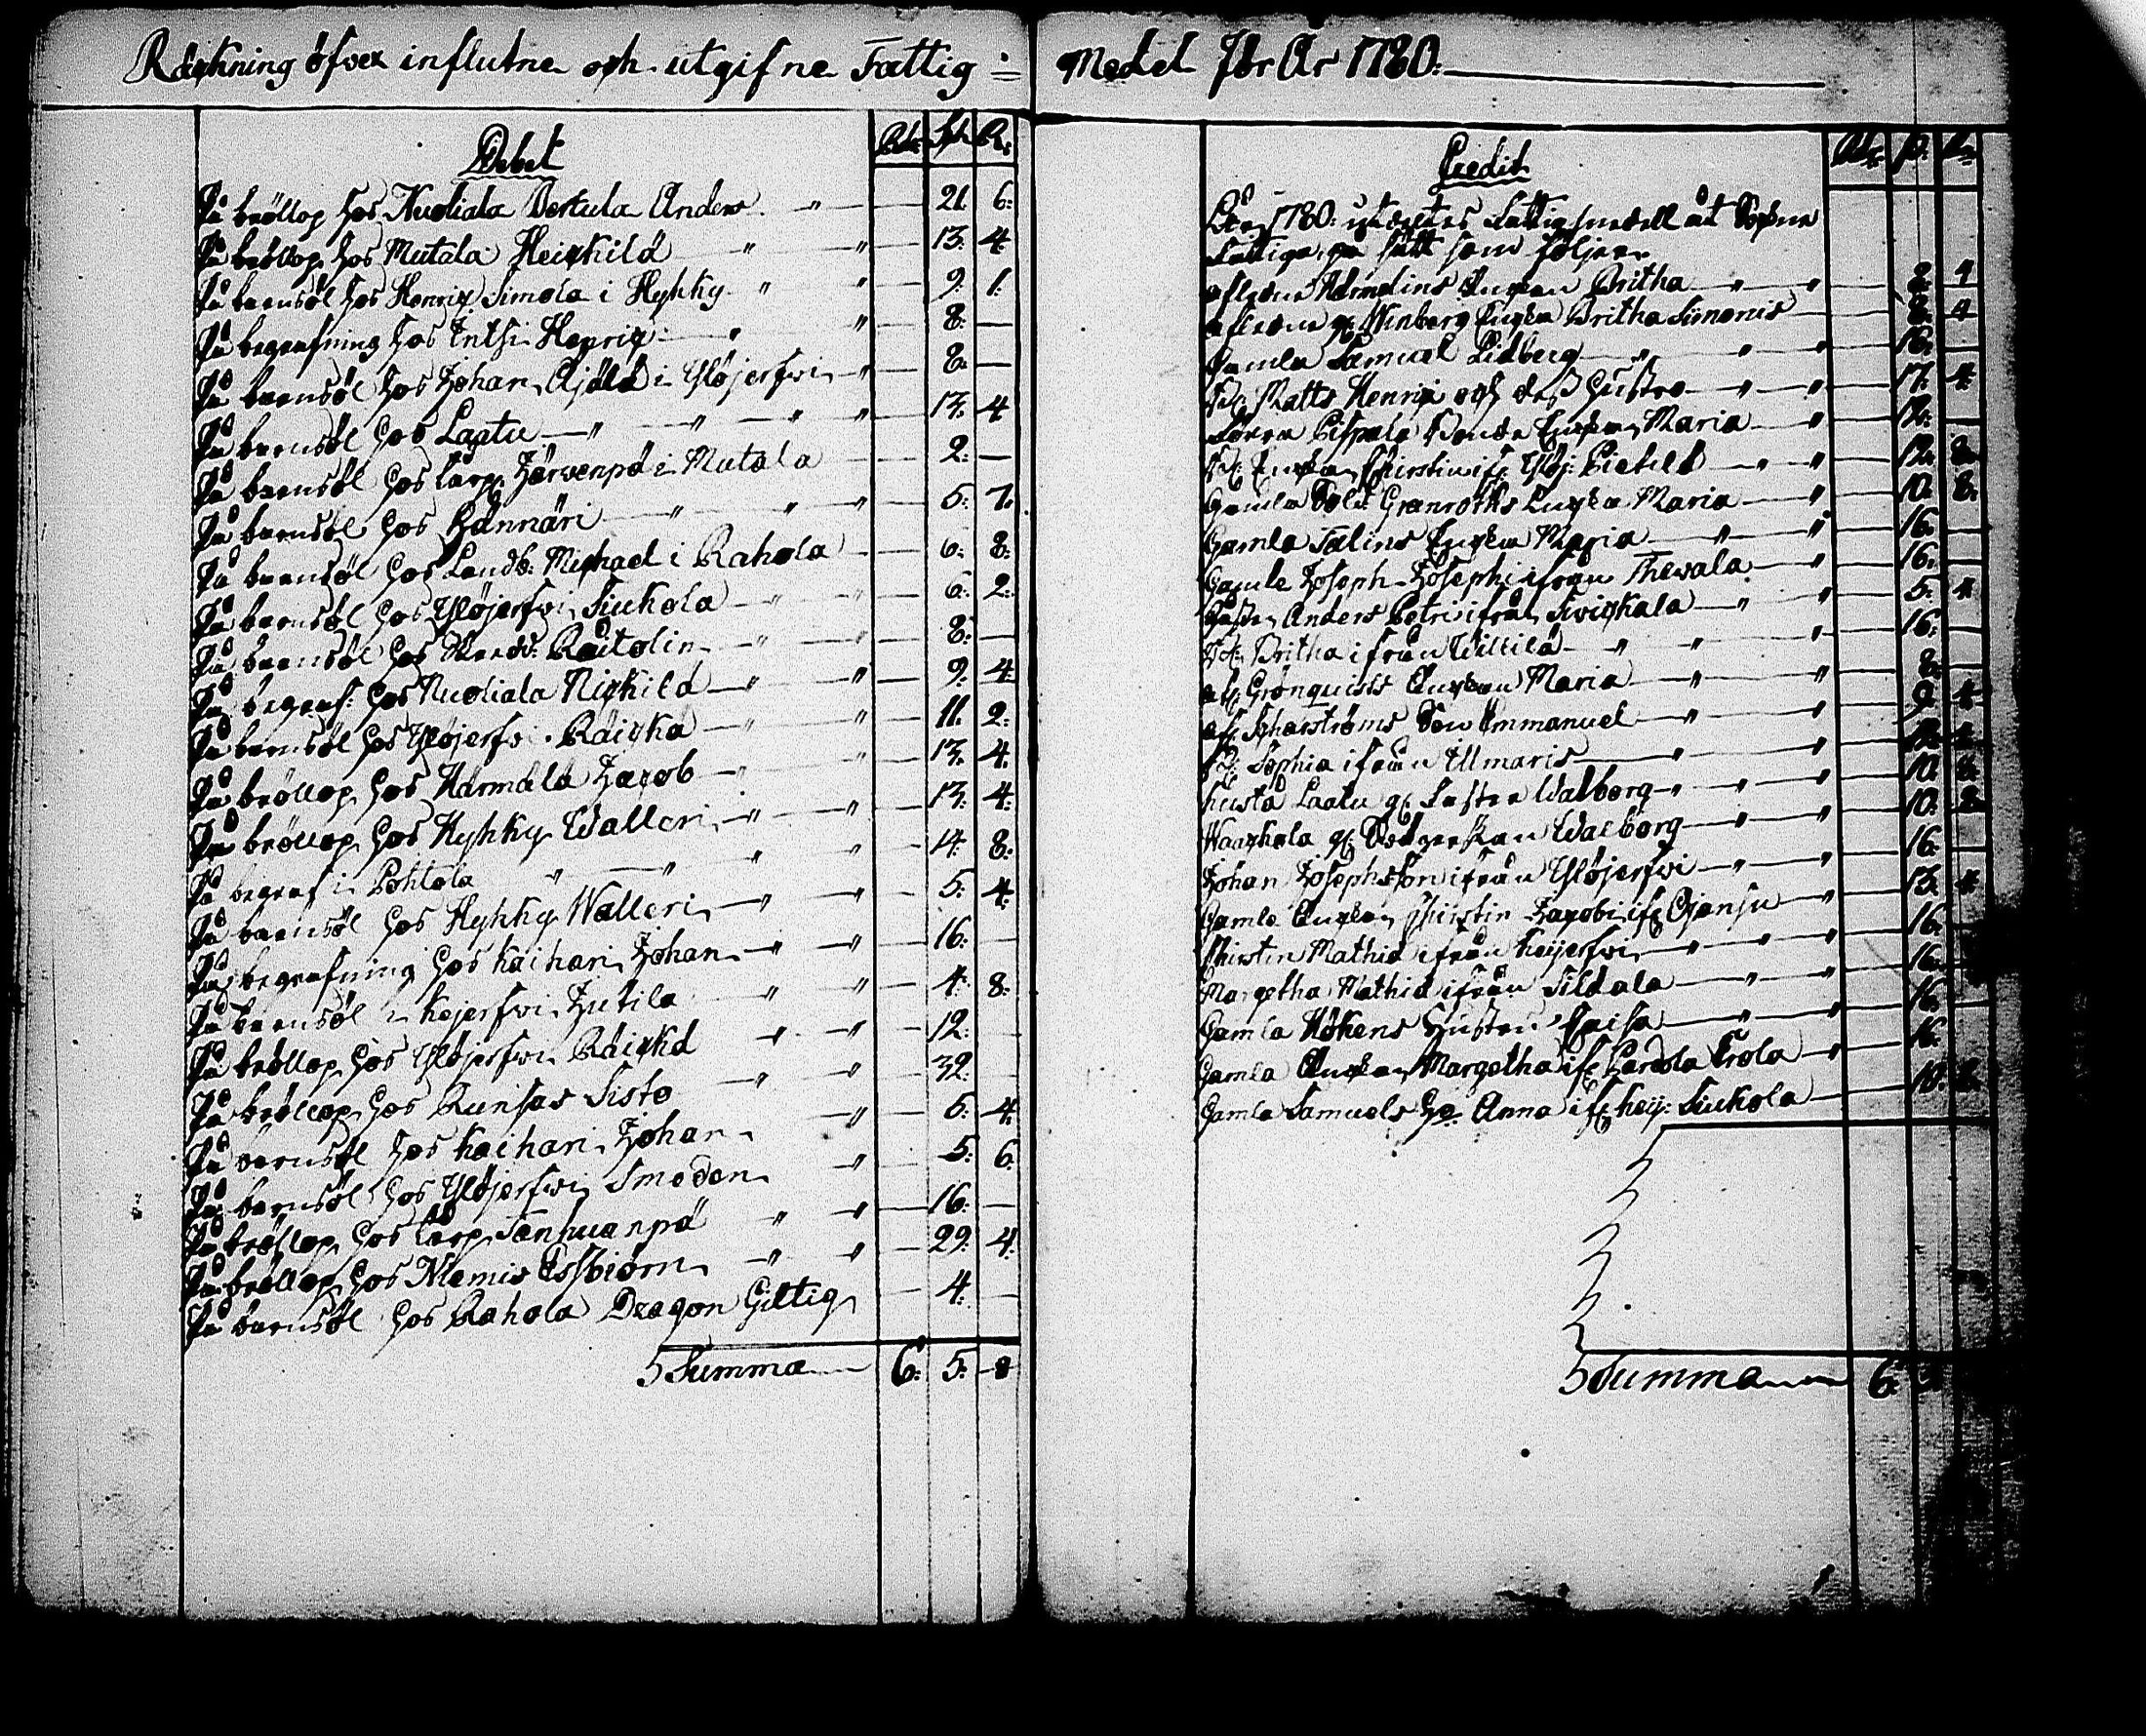 Räckning öfver influtne och utgifne Fattig=
Debet
Rdr. Sch. R.
På bröllop hos Nuoliala Dertula Anders 21. 6.
På bröllop hos Mutala Heickilä 13. 4.
På barnsöl hos Henric Simola i Hyhky 9. 1.
På begrafning hos Intsi Henric 8. —
På barnsöl hos Johan Äjälä i Ylöjerfwi 8. —
På barnsöl hos Laatu 13. 4
På barnsöl hos torp. Järwenpä i Mutala 2. —
På barnsöl hos Hännäri 5. 7.
På barnsöl hos Landb: Michael i Rahola 6. 8.
På barnsöl hos Ylöjerfwi Siukola 6. 2.
På barnsöl hos Raitolin 8. —
På begraf: hos Nuoliala Nickilä 9. 4.
På barnsöl hos Ylöjerfwi Räickä 11. 2.
På bröllop hos Härmälä Jacob 13. 4.
På bröllop hos Hyhky Walleri 13. 4.
På begraf i Pohtola 14. 8.
På barnsöl hos Hyhky Walleri 5. 4.
På begrafning hos Kaihari Johan 16. —
På barnsöl i Kejerfwi Jutila 4. 8.
På bröllop hos Ylöjerfwi Räickä 12.
På bröllop hos Runsas Sisto 32.
På barnsöl hos Kaihari Johan 5. 4.
På barnsöl hos Ylöjerfwi Smeden 5. 6.
På bröllop hos torp. Tanhuanpä 16. —
På bröllop hos Niemis Essbiörn 29. 4.
På barnsöl hos Rahola Dragon Giltig 4. —
Summa 6. 5. 8
Medel För År 1780.
Credit
Rdr. R.
År 1780: utdeltes Fattigmedell åt Sochne
Fattige på sätt som följer.
afledne Enkan Britha 8. 4
afledne Winberg Enka Britha Simonis 8. 4
Gamla Samuel Lidberg 16.
Matts Henric och dess Hustro 17. 4.
Pispala Enkan Maria
Enkan Chirstin ifr. Ylöj: Pietilä 12. 8.
Gamla Sold: Granroths Enka Maria 10. 8.
Gamla Talins Enka Maria 16. —
Gamle Joseph Josephi ifrån Thewala 16. —
Anders Petri ifrån Swickala 5. 4
Britha ifrån Willilä 16. —
Grönquists Enkan Maria 8. —
Son Emmanuel 9. 4
Sophia ifrån Illmaris
Laatu Walborg 10. 8.
Walborg 10. 8.
Johan Josephsson ifrån Ylöjerfwi 16.
Gamla Enkan Chirstin Jacobi ifr. Ojansu 13. 4
Chirstin Mathiä ifrån Keijerfwi 16.
Margetha Mathiä ifrån Sildala 16.
Gamla Hökens Hustru Caisa 16.
Gamla Enkan Margetha ifr. Erola 16.
Gamla Samuels Anna ifr. Keij: Siukola 10. 8.
Summa 6.